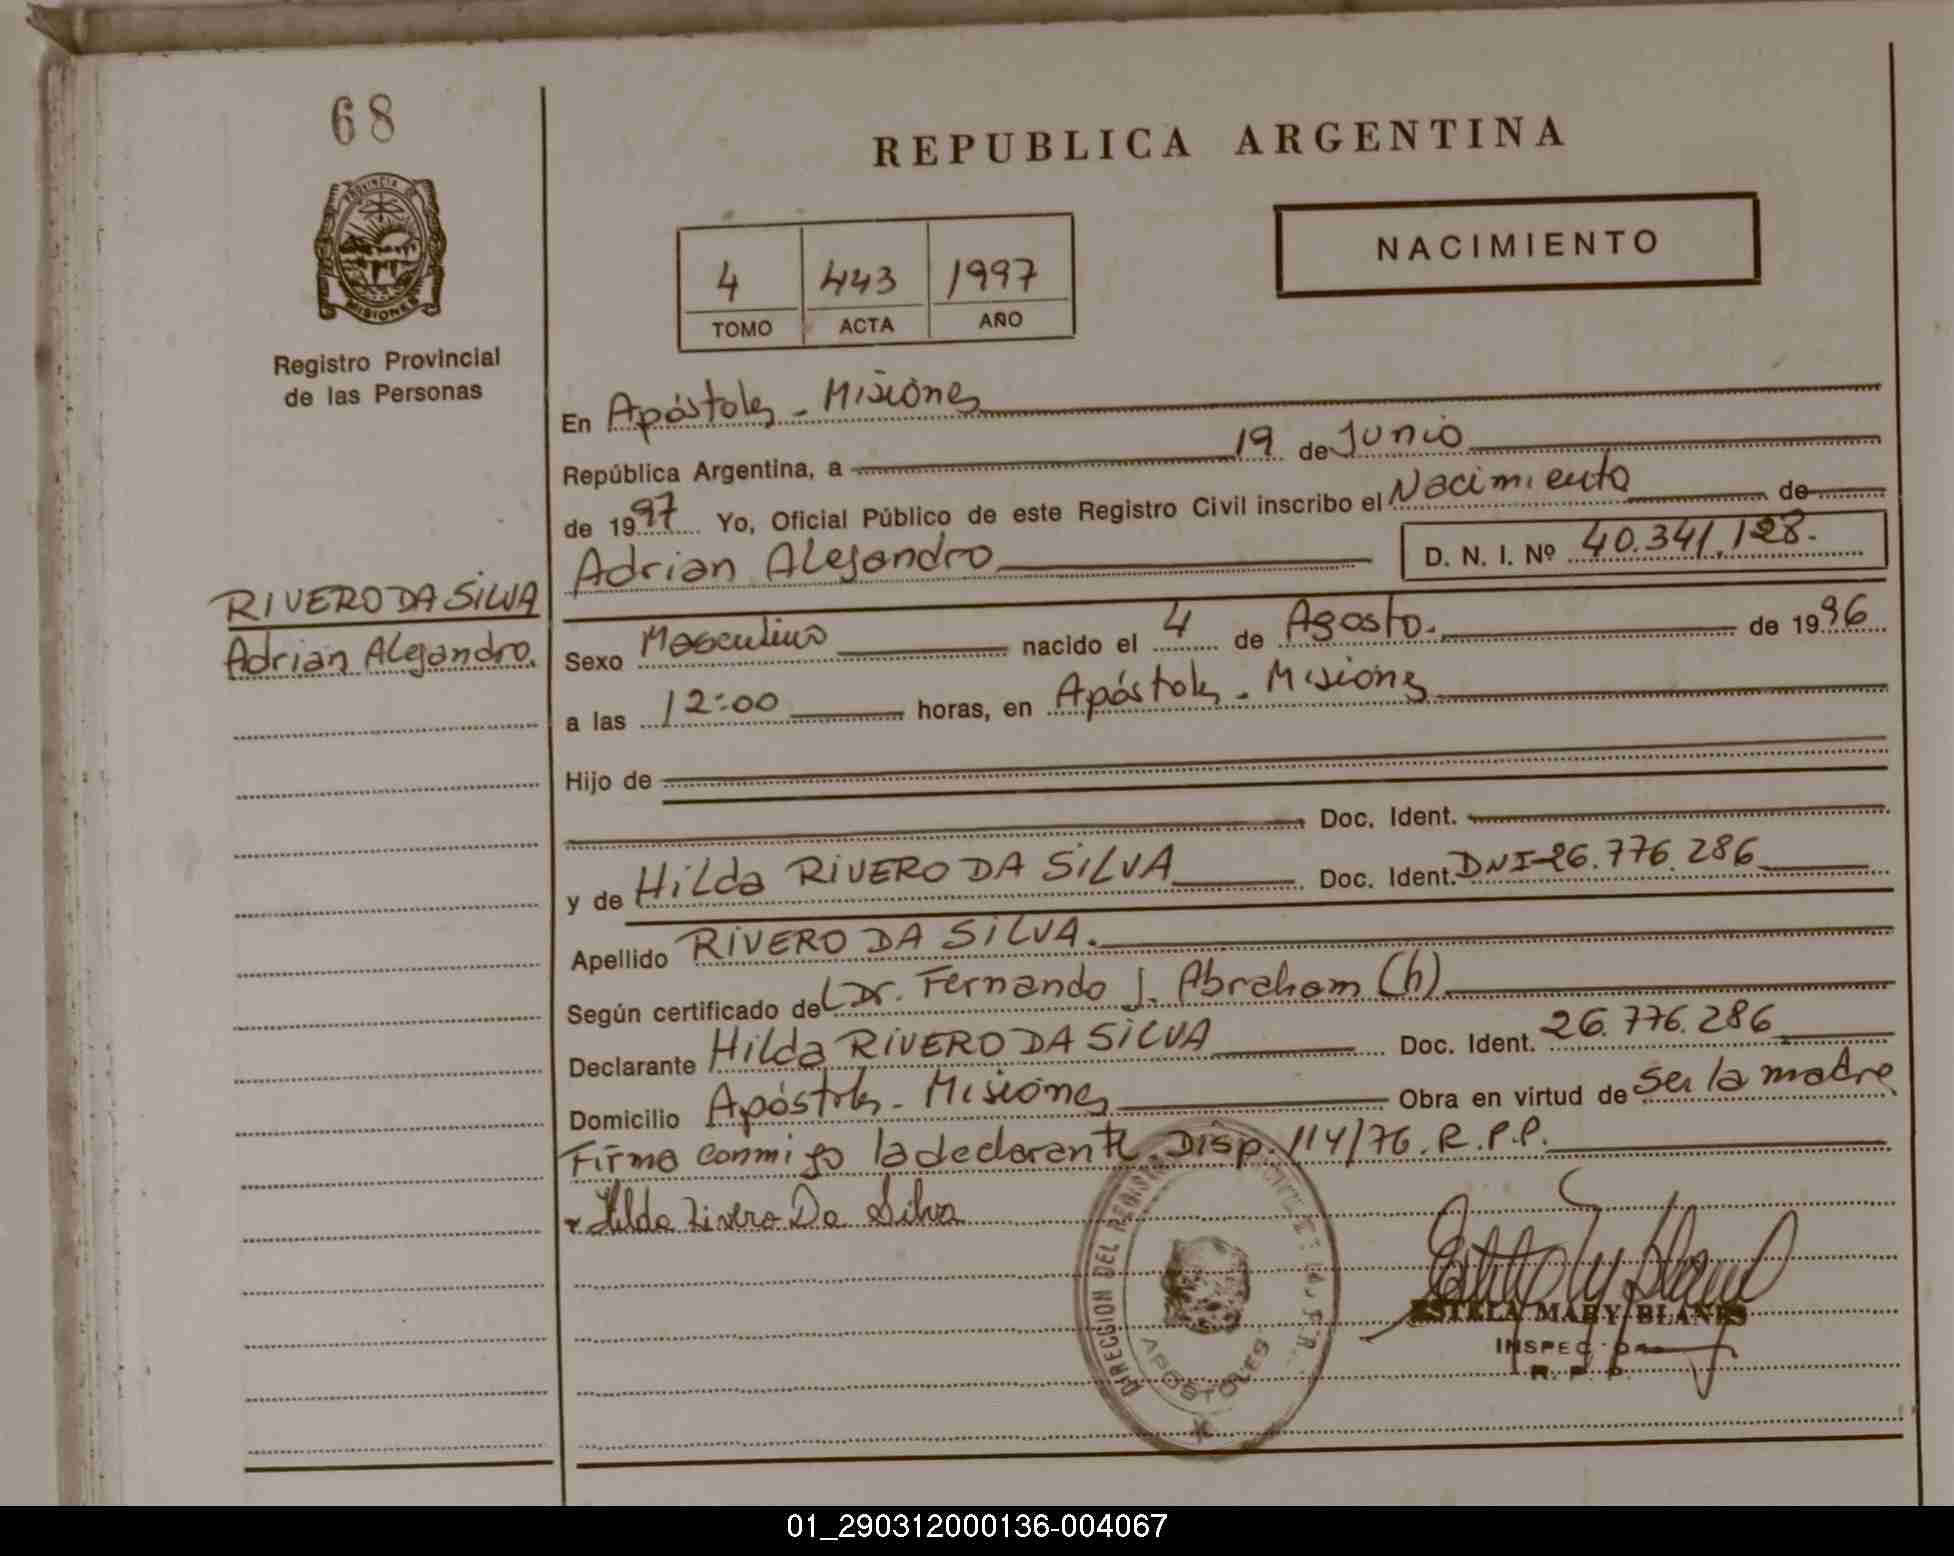 68
REPUBLICA ARGENTINA
PROVINCIA DE
MISIONES
Registro Provincial
de las Personas
4 443 1997
TOMO ACTA AÑO
NACIMIENTO
En Apóstoles - Misiones
República Argentina, a 19 de Junio
de 1997 Yo, Oficial Público de este Registro Civil inscribo el Nacimiento de
Adrian Alejandro D. N. I. Nº 40.341.128.
RIVERO DA SILVA
Adrian Alejandro.
Sexo Masculino nacido el 4 de Agosto. de 1996
a las 12:00 horas, en Apóstoles - Misiones
Hijo de
Doc. Ident.
y de Hilda RIVERO DA SILVA Doc. Ident. DNI-26.776.286
Apellido RIVERO DA SILVA.
Según certificado del Dr. Fernando J. Abraham (h)
Declarante Hilda RIVERO DA SILVA Doc. Ident. 26.776.286
Domicilio Apóstoles - Misiones Obra en virtud de ser la madre
Firma conmigo la declarante. Disp. 114/76. R.P.P.
Hilda Rivero Da Silva
DIRECCION DEL REGISTRO
APOSTOLES
ESTELA MARY BLANES
R. P. P.
01_290312000136-004067